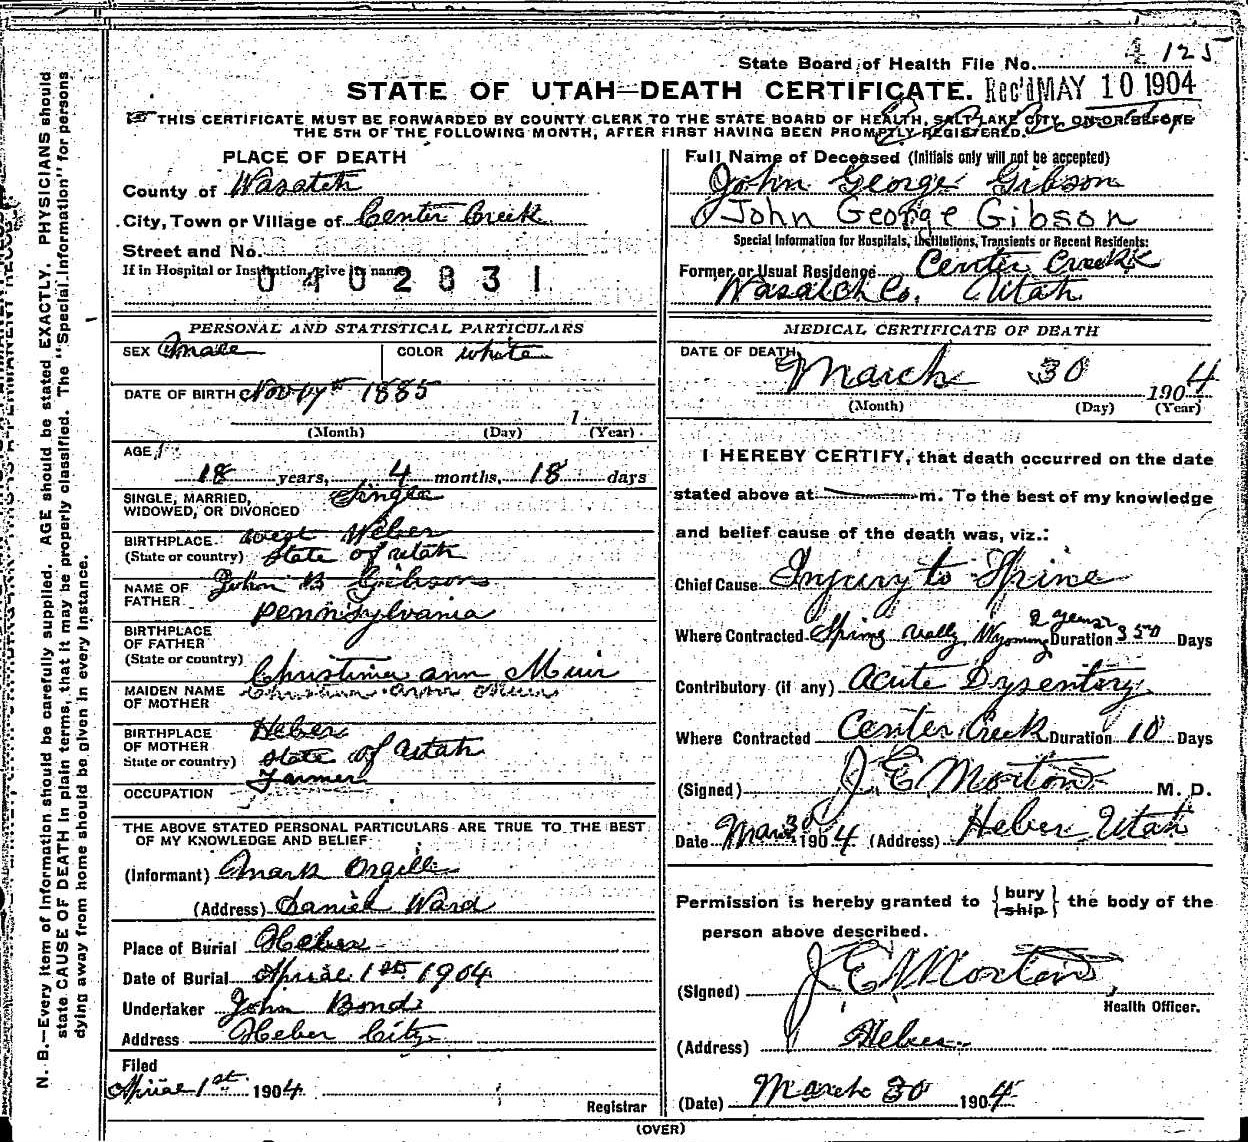 State Board of Health File No. 4 125
STATE OF UTAH—DEATH CERTIFICATE. Rec'd MAY 10 1904
THIS CERTIFICATE MUST BE FORWARDED BY COUNTY CLERK TO THE STATE BOARD OF HEALTH, SALT LAKE CITY, ON OR BEFORE
THE 5TH OF THE FOLLOWING MONTH, AFTER FIRST HAVING BEEN PROMPTLY REGISTERED.
PLACE OF DEATH
County of Wasatch
City, Town or Village of Center Creek
Street and No.
If in Hospital or Institution, give its name
0402831
Full Name of Deceased (Initials only will not be accepted)
John George Gibson
John George Gibson
Special Information for Hospitals, Institutions, Transients or Recent Residents:
Former or Usual Residence Center Creek
Wasatch Co. Utah
PERSONAL AND STATISTICAL PARTICULARS
SEX Male COLOR White
DATE OF BIRTH Nov 1885
1
(Month) (Day) (Year)
AGE
18 years, 4 months, 18 days
SINGLE, MARRIED, Single
WIDOWED, OR DIVORCED
BIRTHPLACE West Weber
(State or country) State of Utah
NAME OF John B Gibson
FATHER
Pennsylvania
BIRTHPLACE
OF FATHER
(State or country)
Christina ann Muir
MAIDEN NAME Christina ann Muir
OF MOTHER
BIRTHPLACE Heber
OF MOTHER State of Utah
State or country)
Farmer
OCCUPATION
THE ABOVE STATED PERSONAL PARTICULARS ARE TRUE TO THE BEST
OF MY KNOWLEDGE AND BELIEF
(Informant) Mark Orgill
(Address) Daniel Ward
Place of Burial Heber
Date of Burial April 1st 1904
Undertaker John Bond
Address Heber City
Filed
April 1st 1904
Registrar
MEDICAL CERTIFICATE OF DEATH
DATE OF DEATH
March 30 1904
(Month) (Day) (Year)
I HEREBY CERTIFY, that death occurred on the date
stated above at m. To the best of my knowledge
and belief cause of the death was, viz.:
Chief Cause Injury to Spine
2 years
Where Contracted Spring Vally Wyoming Duration 350 Days
Contributory (if any) Acute Dysentory
Where Contracted Center Creek Duration 10 Days
(Signed) J E Morton M. D.
Date Mar 30 1904 (Address) Heber Utah
Permission is hereby granted to { bury ship } the body of the
person above described.
(Signed) J E Morton
Health Officer.
(Address) Heber
(Date) March 30 1904
(OVER)
N. B.—Every item of information should be carefully supplied. AGE should be stated EXACTLY. PHYSICIANS should
state CAUSE OF DEATH in plain terms, that it may be properly classified. The "Special Information" for persons
dying away from home should be given in every instance.